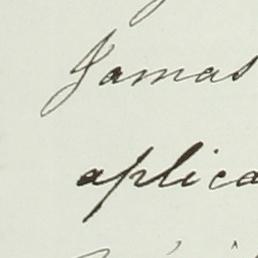 Jamas
aplica